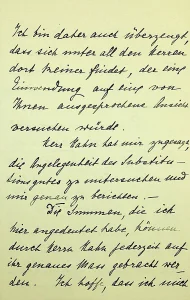 Ich bin daher auch überzeugt,
dass sich unter all den Herren
dort keiner findet, der eine
Einwendung auf eine von
Ihnen ausgesprochene Ansicht
versuchen würde.
Herr Hahn hat mir zugesagt
die Angelegenheit des Substitu-
tionsgutes zu untersuchen und
mir genau zu berichten. —
Die Summen, die ich
hier angedeutet habe, können
durch Herrn Hahn jederzeit auf
ihr genaues Mass gebracht wer-
den. Ich hoffe, dass ich mich